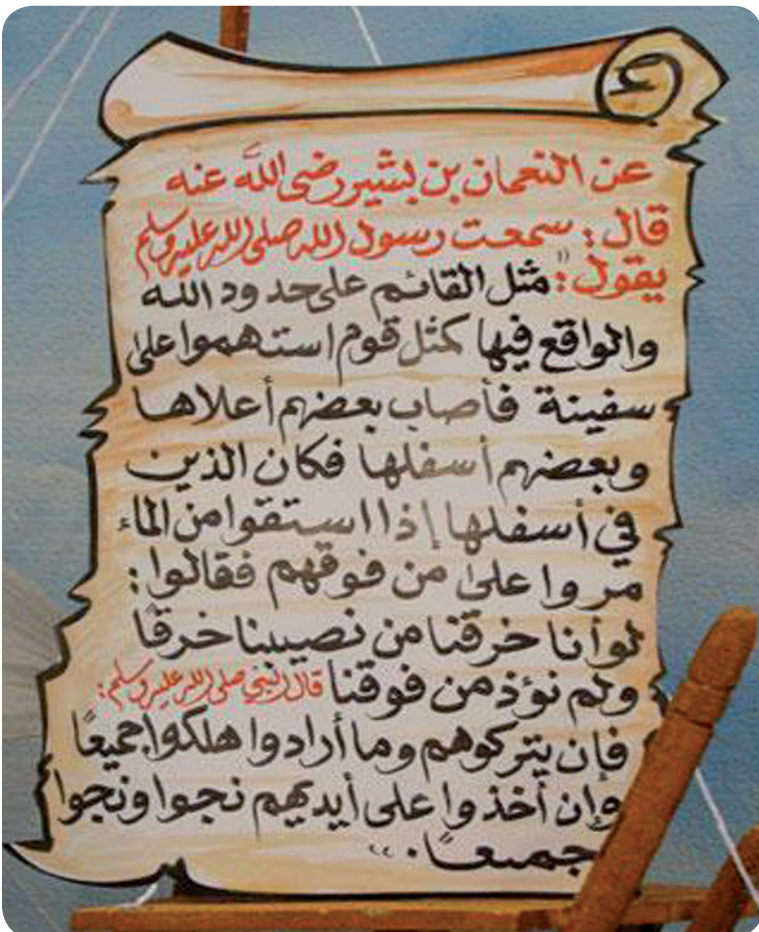 عن النعمان بن بشير رضي الله عنه
قال : سمعت رسول الله صلى الله عليه وسلم
يقول : "مثل القائم على حدود الله
والواقع فيها كمثل قوم استهموا على
سفينة فأصاب بعضهم أعلاها
وبعضهم أسفلها فكان الذين
في أسفلها إذا استقوا من الماء
مروا على من فوقهم فقالوا :
لو أنا خرقنا من نصيبنا خرقًا
ولم نؤذ من فوقنا قال النبي صلى الله عليه وسلم :
فإن يتركوهم وما أرادوا هلكوا جميعًا
وإن أخذوا على أيديهم نجوا ونجوا
جميعًا . "